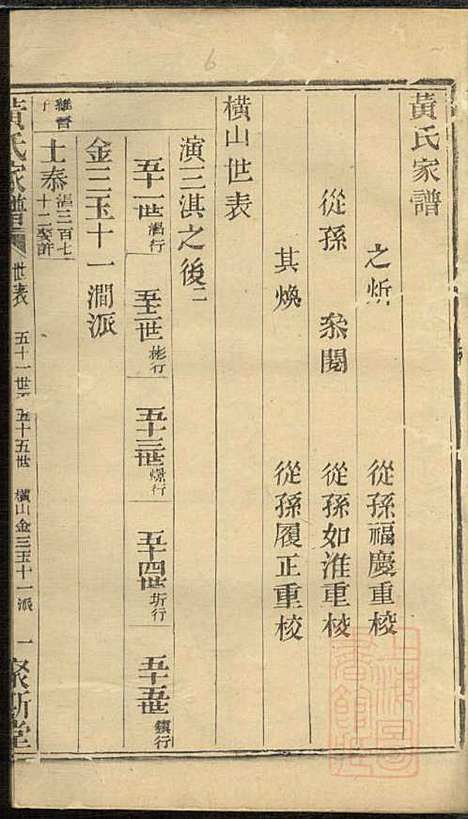 黃氏家譜
之炘 從孫福慶重校
從孫 枲閱 從孫如淮重校
其煥 從孫履正重校
橫山世表
演三淇之後二
五十一世滆行 五十二世彬行 五十三世爆行 五十四世圻行 五十五世鎮行
金三玉十一澗派
維晋子
士泰滆三百七十二娶許
黃氏家譜 世表 五十一世至五十五世 橫山金三玉十一派 一 聚斯堂
6